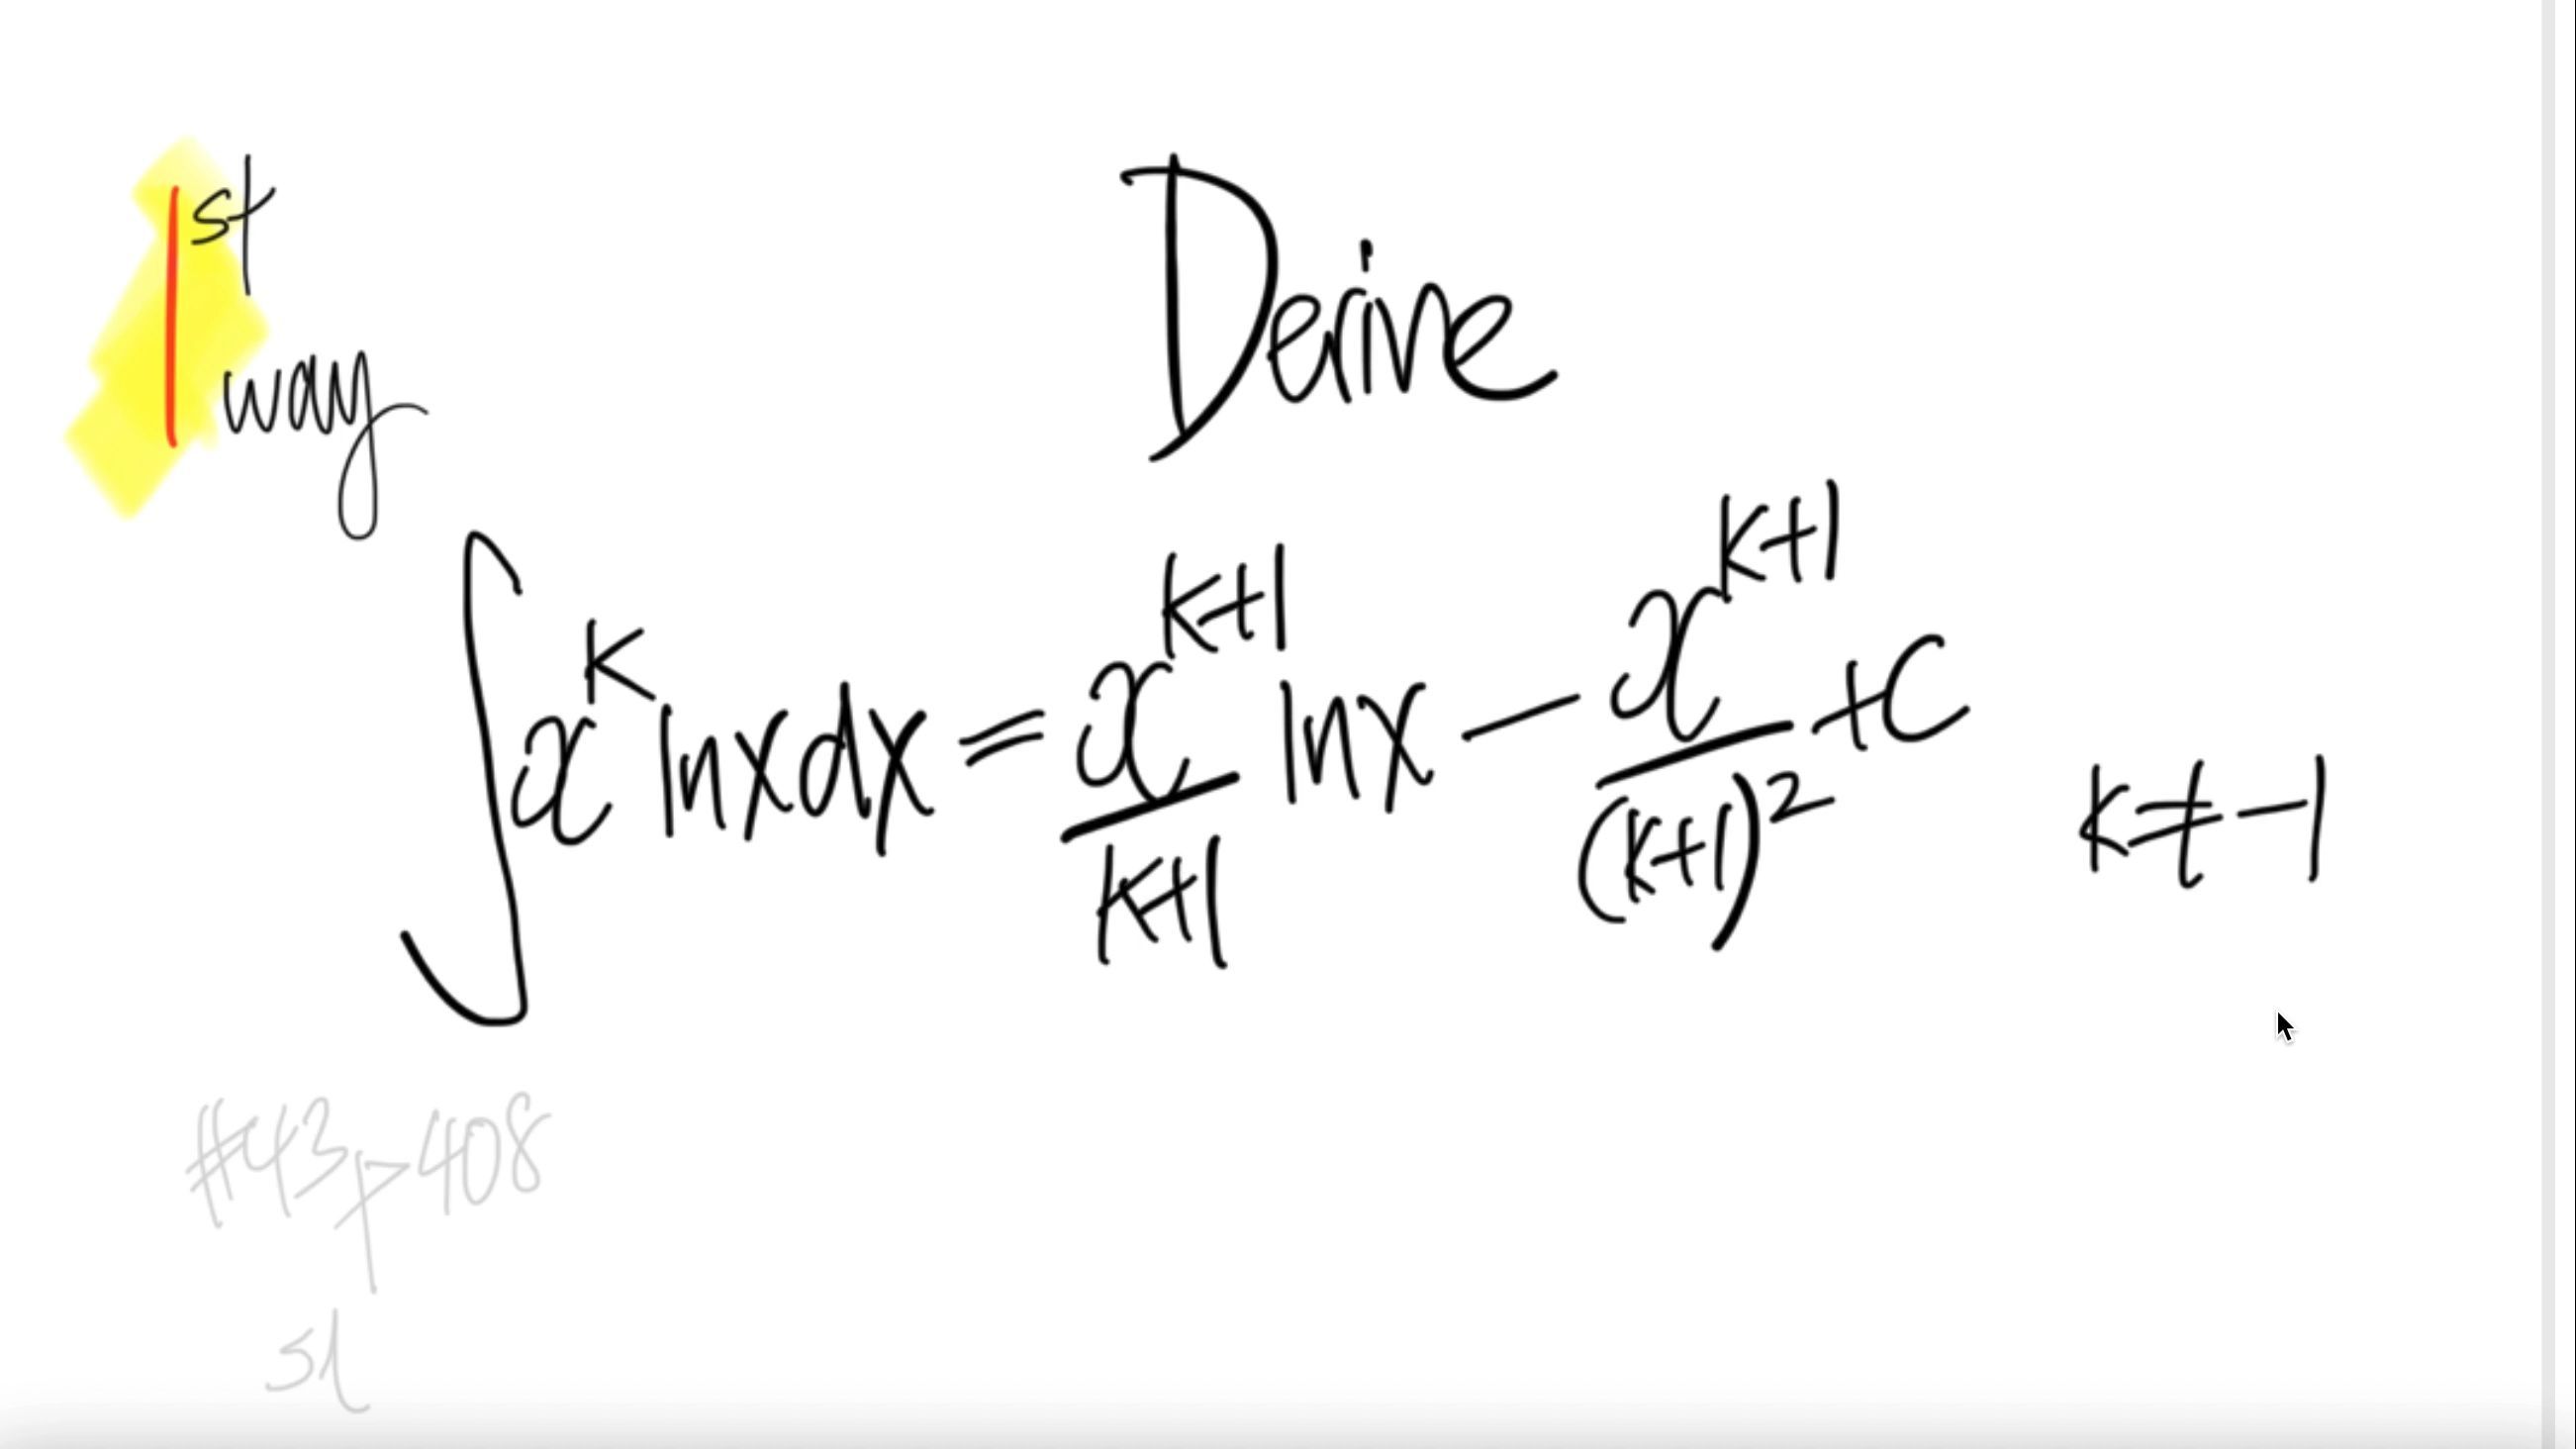 1st way
Derive
∫x^k lnxdx = x^(k+1)/(k+1) lnx - x^(k+1)/(k+1)^2 + C k ≠ -1
#43 p408